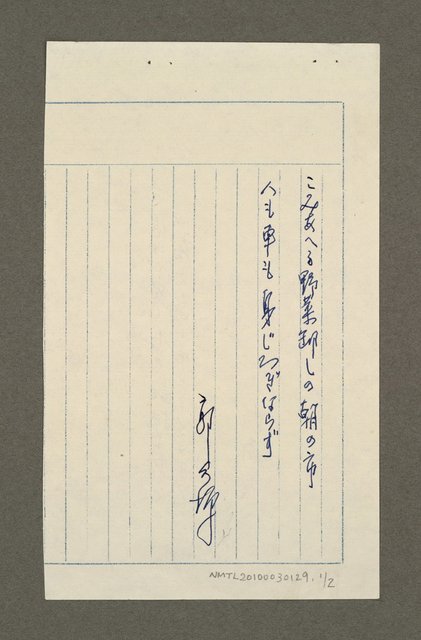 こみあへる野菜卸しの朝の市
人も車も身じろぎならず
郭
NMTL20100030129. 1/2